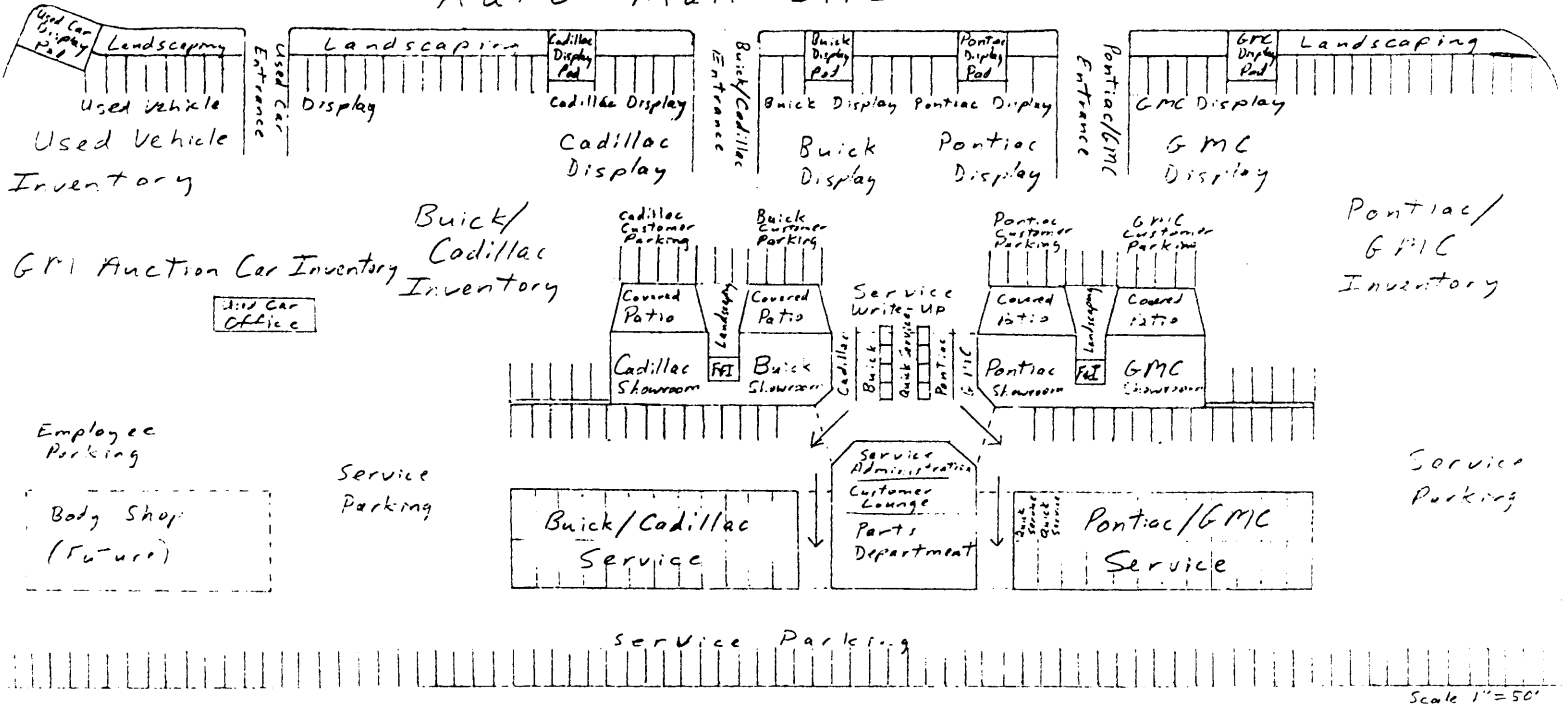 Auto Mall
Used Car
Display
Pad
Landscaping
Used Car
Entrance
Landscaping
Cadillac
Display
Pad
Buick/Cadillac
Entrance
Buick
Display
Pad
Pontiac
Display
Pad
Pontiac/GMC
Entrance
GMC
Display
Pad
Landscaping
Used Vehicle
Display
Cadillac Display
Buick Display
Pontiac Display
GMC Display
Used Vehicle
Inventory
Cadillac
Display
Buick
Display
Pontiac
Display
GMC
Display
GM Auction Car Inventory
Used Car
Office
Buick/
Cadillac
Inventory
Cadillac
Customer
Parking
Buick
Customer
Parking
Pontiac
Customer
Parking
GMC
Customer
Parking
Pontiac/
GMC
Inventory
Covered
Patio
Landscaping
Covered
Patio
Service
Write-Up
Covered
Patio
Landscaping
Covered
Patio
Cadillac
Showroom
F&I
Buick
Showroom
Cadillac
Buick
Quick Service
Pontiac
GMC
Pontiac
Showroom
F&I
GMC
Showroom
Employee
Parking
Service
Parking
Service
Administration
Customer
Lounge
Parts
Department
Service
Parking
Body Shop
(Future)
Buick/Cadillac
Service
Quick
Service
Quick
Service
Pontiac/GMC
Service
Service Parking
Scale 1"=50'